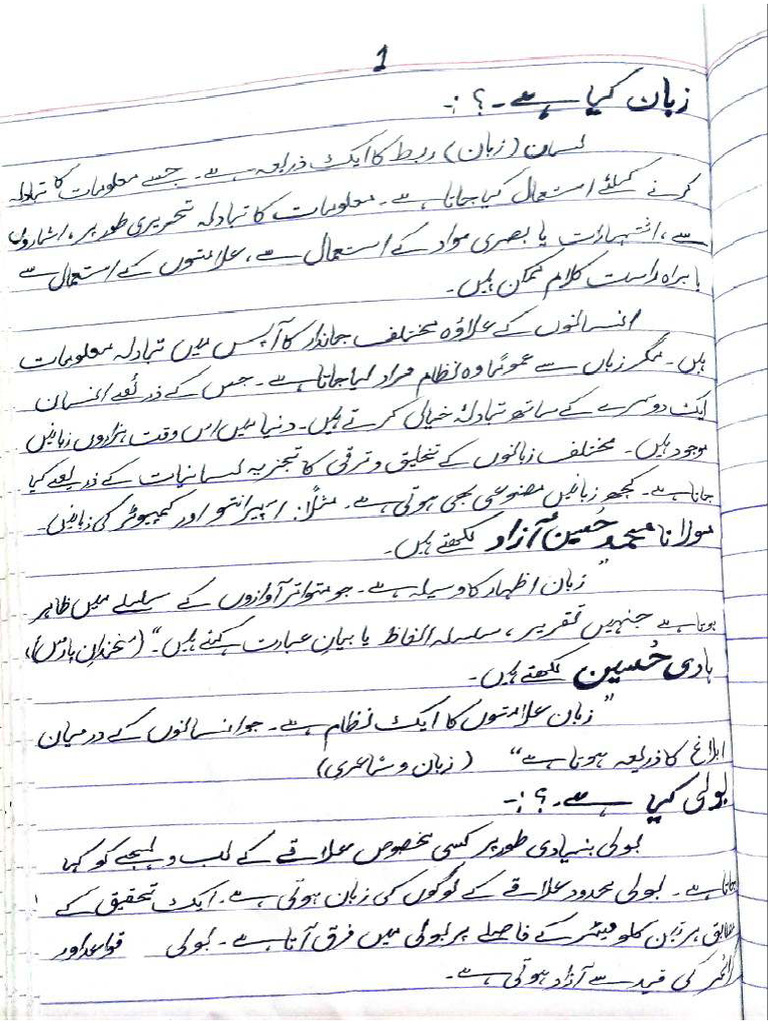 1
زبان کیا ہے۔؟:-
لسان (زبان) ربط کا ایک ذریعہ ہے۔ جسے معلومات کا تبادلہ
کرنے کیلئے استعمال کیا جاتا ہے۔ معلومات کا تبادلہ تحریری طور پر، اشاروں
سے، اشتہارات یا بصری مواد کے استعمال سے، علامتوں کے استعمال سے
یا براہ راست کلام ممکن ہیں۔
انسانوں کے علاوہ مختلف جاندار کا آپس میں تبادلہ معلومات
ہیں۔ مگر زباں سے عموماً وہ نظام مراد لیا جاتا ہے۔ جس کے ذریعے انسان
ایک دوسرے کے ساتھ تبادلۂ خیال کرتے ہیں۔ دنیا میں اس وقت ہزاروں زبانیں
موجود ہیں۔ مختلف زبانوں کے تخلیق و ترقی کا تجزیہ لسانیات کے ذریعے کیا
جاتا ہے۔ کچھ زبانیں مصنوعی بھی ہوتی ہے۔ مثلاً: اسپرانتو اور کمپیوٹر کی زبانیں۔
مولانا محمد حُسین آزاد لکھتے ہیں۔
"زبان اظہار کا وسیلہ ہے۔ جو متواتر آوازوں کے سلسلے میں ظاہر
ہوتا ہے جنہیں تقریر، سلسلہ الفاظ یا بیانِ عبارت کہتے ہیں۔" (سخندانِ پارس)
ہادی حُسین لکھتے ہیں۔
"زبان علامتوں کا ایک نظام ہے۔ جو انسانوں کے درمیان
ابلاغ کا ذریعہ ہوتا ہے" (زبان و شاعری)
بولی کیا ہے۔؟:-
بولی بنیادی طور پر کسی مخصوص علاقے کے لب و لہجے کو کہا
جاتا ہے۔ بولی محدود علاقے کے لوگوں کی زبان ہوتی ہے۔ ایک تحقیق کے
مطابق ہر تین کلومیٹر کے فاصلے پر بولی میں فرق آتا ہے۔ بولی قواعد اور
گرائمر کی قید سے آزاد ہوتی ہے۔